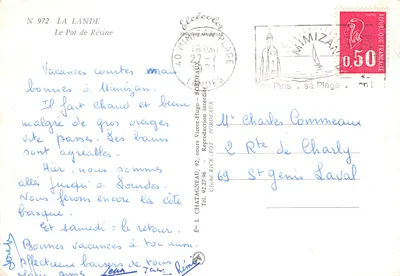 N 972 LA LANDE
Le Pot de Résine
Vacances courtes mais
bonnes à Mimizan.
Il fait chaud et beau
malgré de gros orages
vite passés. Les bains
sont agréables.
Hier, nous sommes
allés jusqu'à Lourdes.
Nous ferons encore la côte
basque.
Et samedi : le retour.
Bonnes vacances à toi aussi.
Affectueux baisers de tous
Jean Rémi
40 MIMIZAN PLAGE
LANDES
MIMIZAN
Pins . sa Plage
0,50
CHATAGNEAU, 92, cours Victor-Hugo - BORDEAUX
Tél. 92-27-96 - Reproduction interdite
Mr Charles Commeaux
2 Rte de Charly
69 St genis Laval